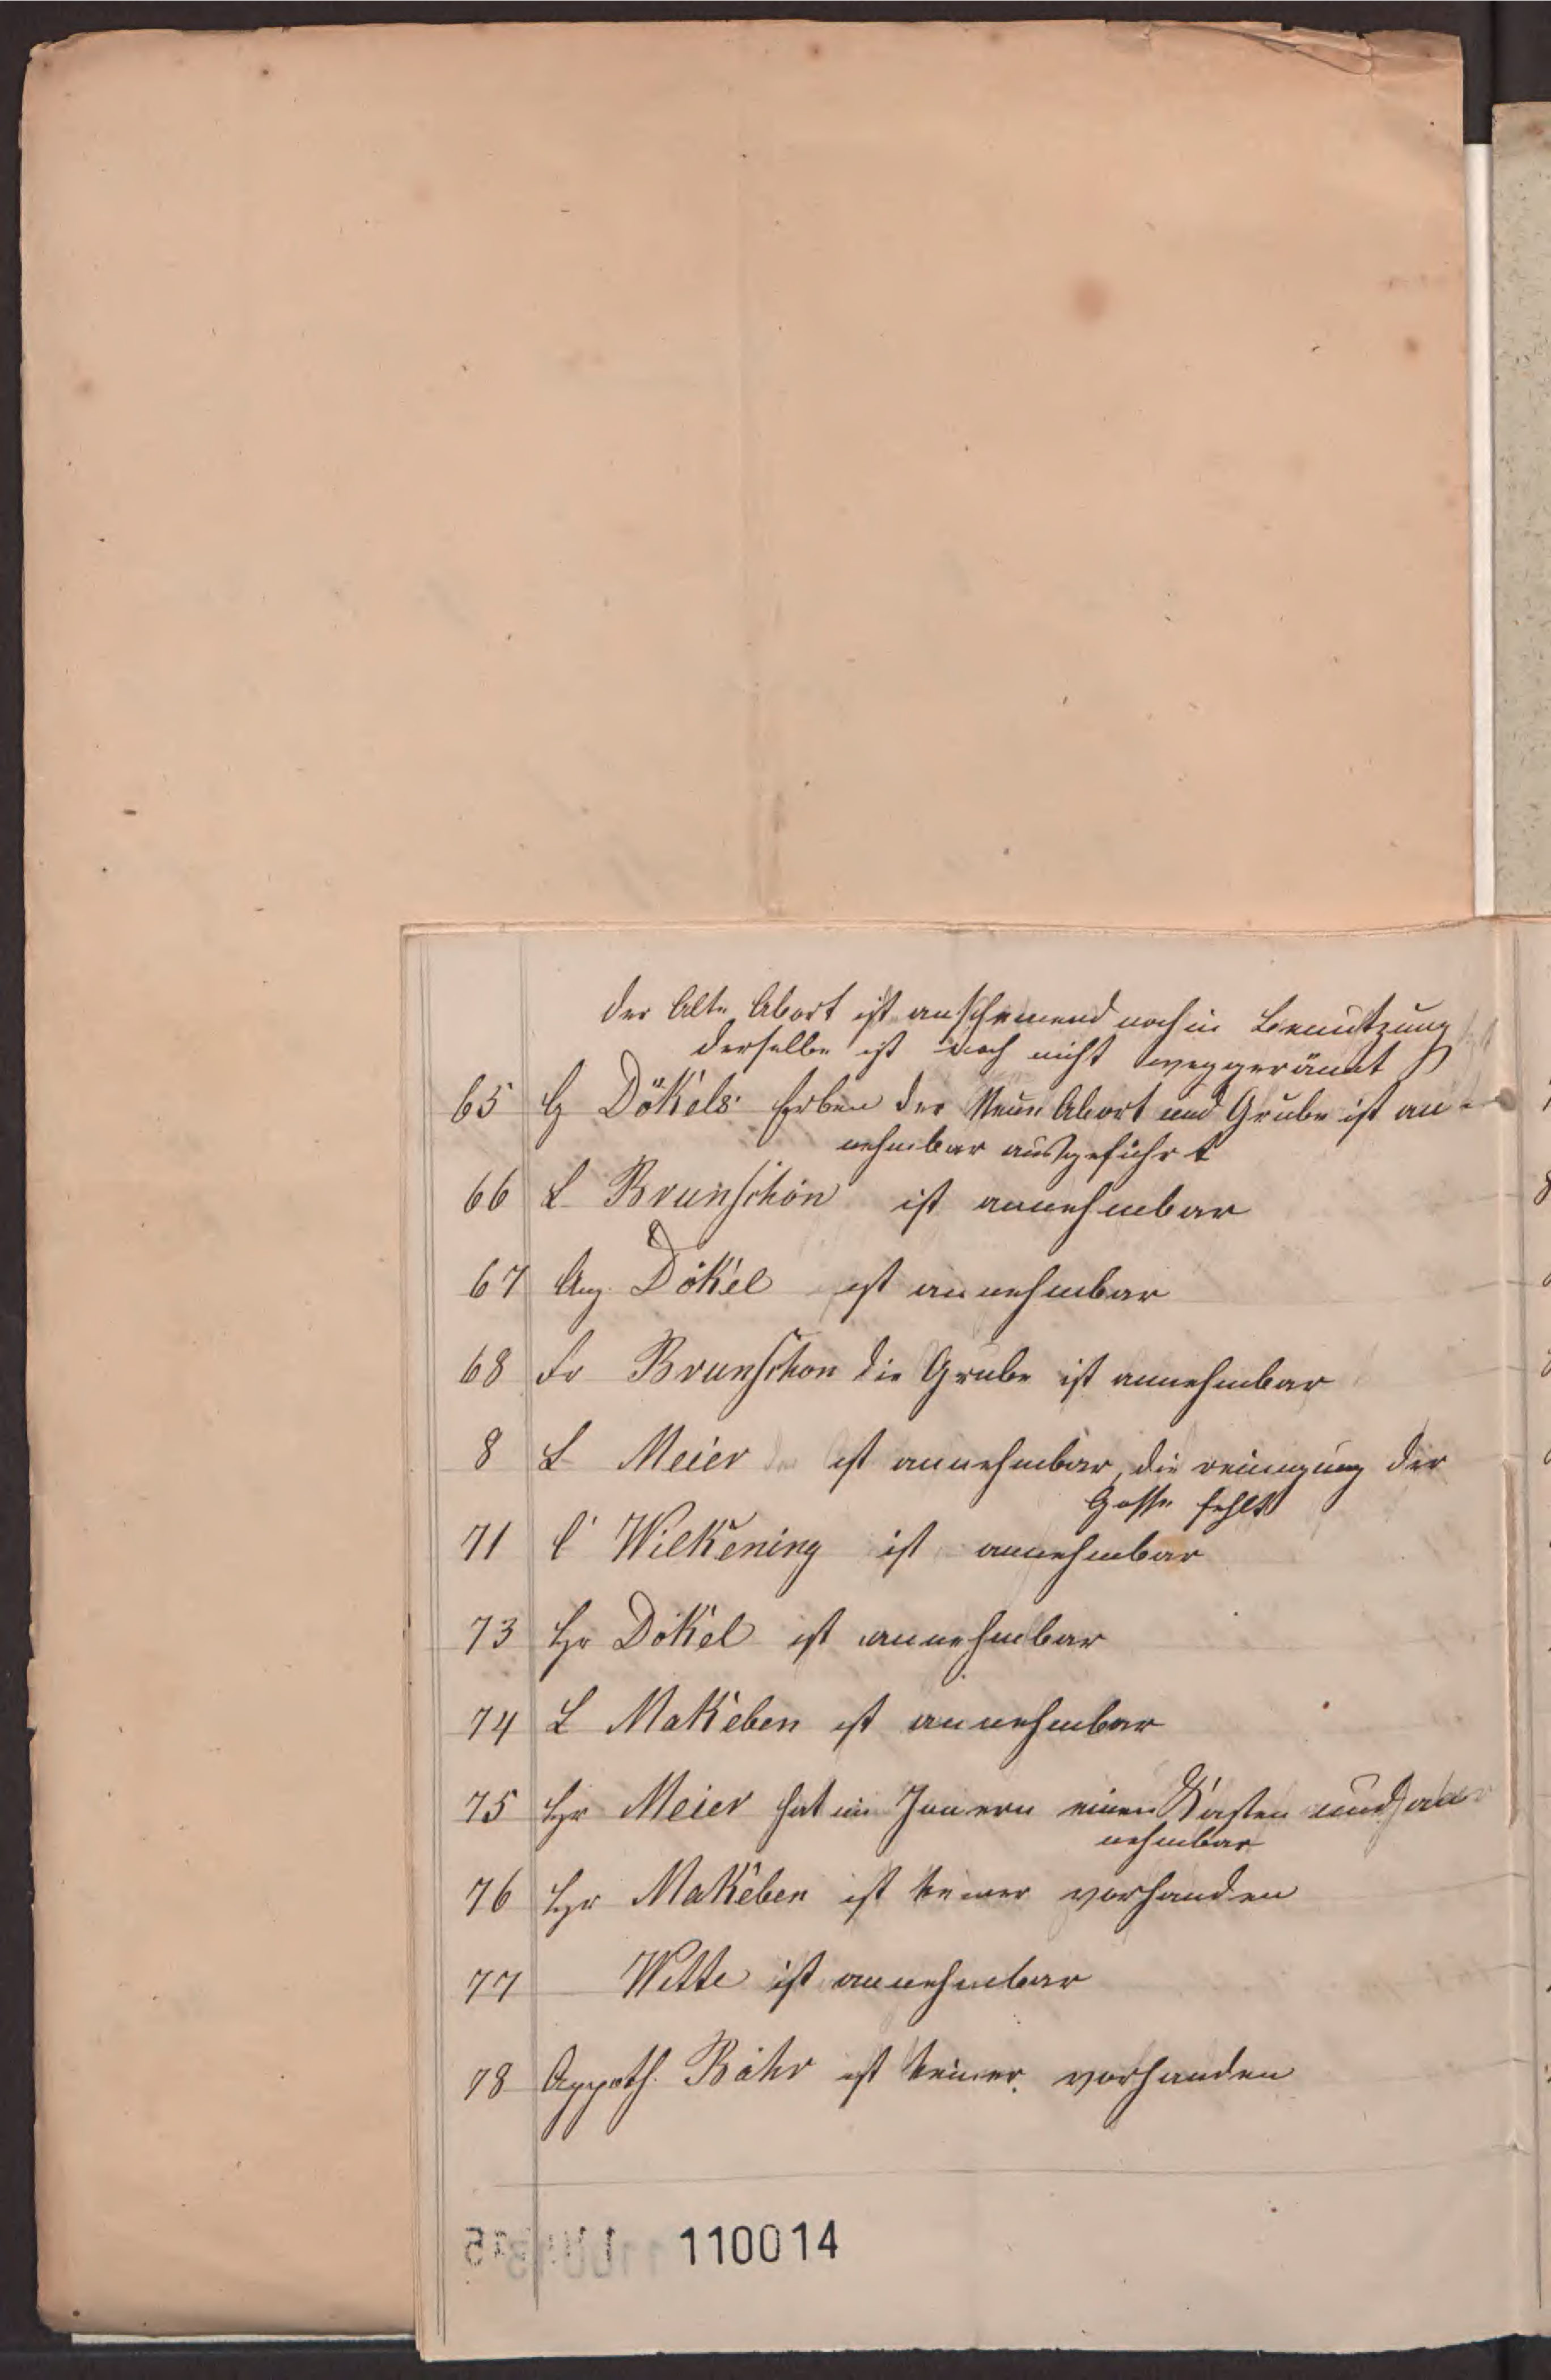 der Alte Abort ist anscheinend noch in Benutzung
derselbe ist noch nicht weggeräumt
65 H Dökels Erben der Neue Abort und Grube ist an-
nehmbar ausgeführt
66 L Brunschön ist annehmbar
67 Aug. Dökel ist annehmbar
68 Fr Brunschon die Grube ist annehmbar
8 L Meier ist annehmbar, die reinigung der
Gosse fehlt
71 C Wilkening ist annehmbar
73 Hr Dökel ist annehmbar
74 L Makeben ist annehmbar
75 Hr Meier hat im Innern einen Kasten und an
nehmbar
76 Hr Makeben ist keiner vorhanden
77 Witte ist annehmbar
78 Appoth. Bähr ist keiner vorhanden
110014